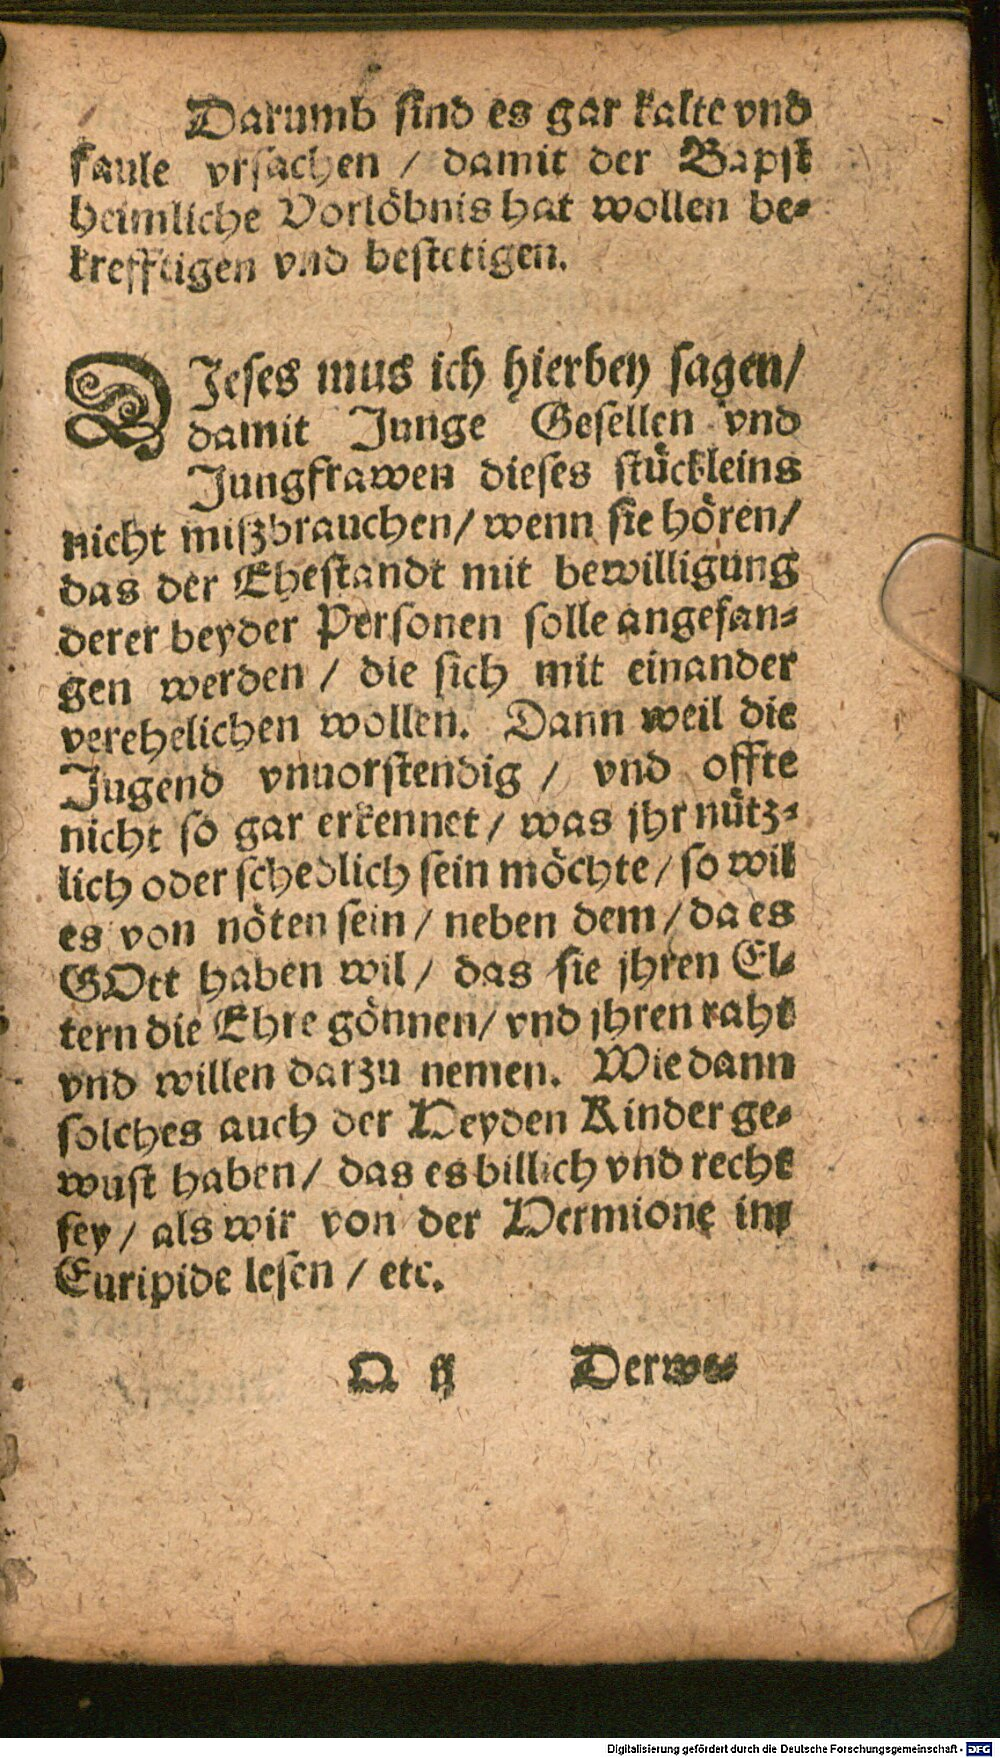 Darumb sind es gar kalte vnd
faule vrsachen / damit der Bapst
heimliche Vorlöbnis hat wollen be-
krefftigen vnd bestetigen.
DJeses mus ich hierbey sagen/
damit Junge Gesellen vnd
Jungfrawen dieses stückleins
nicht miszbrauchen/ wenn sie hören/
das der Ehestandt mit bewilligung
derer beyder Personen solle angefan-
gen werden / die sich mit einander
verehelichen wollen. Dann weil die
Jugend vnuorstendig / vnd offte
nicht so gar erkennet/ was jhr nütz-
lich oder schedlich sein möchte/ so wil
es von nöten sein / neben dem/ da es
GOtt haben wil/ das sie jhren El-
tern die Ehre gönnen/ vnd jhren raht
vnd willen darzu nemen. Wie dann
solches auch der Heyden Kinder ge-
wust haben/ das es billich vnd recht
sey / als wir von der Hermione im
Euripide lesen / etc.
Q ij Derwe-
Digitalisierung gefördert durch die Deutsche Forschungsgemeinschaft - DFG